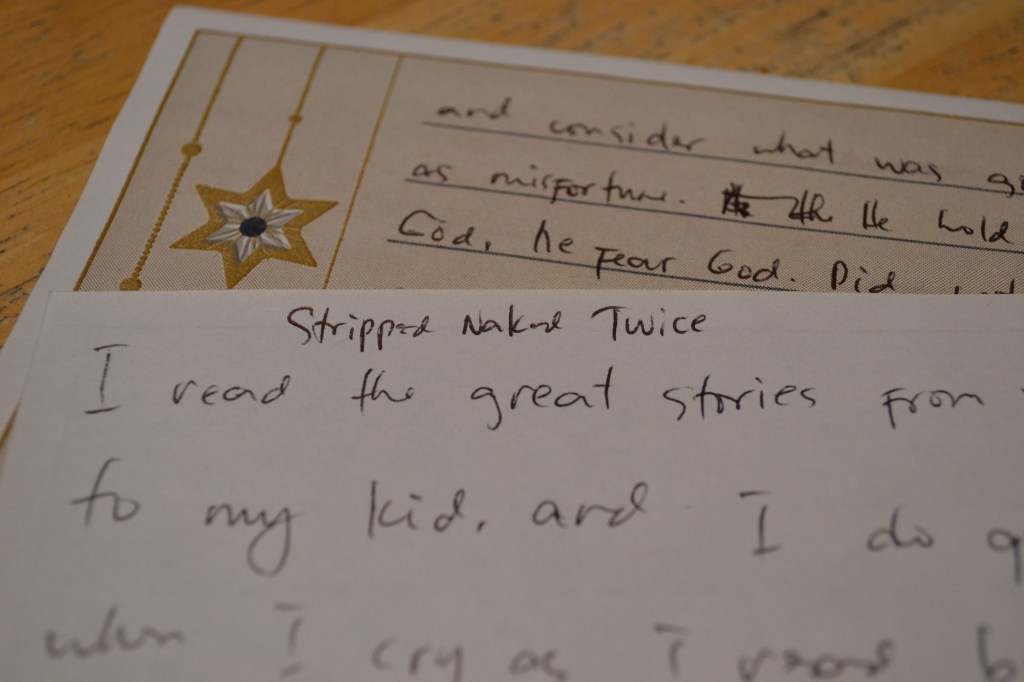 and consider what was
as misfortune. He hold
God, he fear God. Did
Stripped Naked Twice
I read the great stories from
to my kid, and I do
when I cry as I read